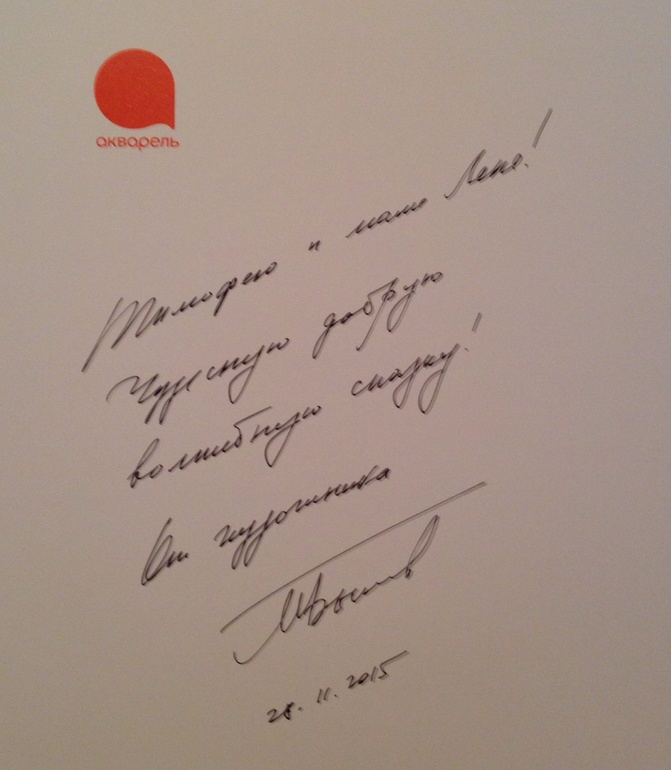 акварель
Тимофею и маме Лене!
Чудесную добрую
волшебную сказку!
От художника
28.11.2015